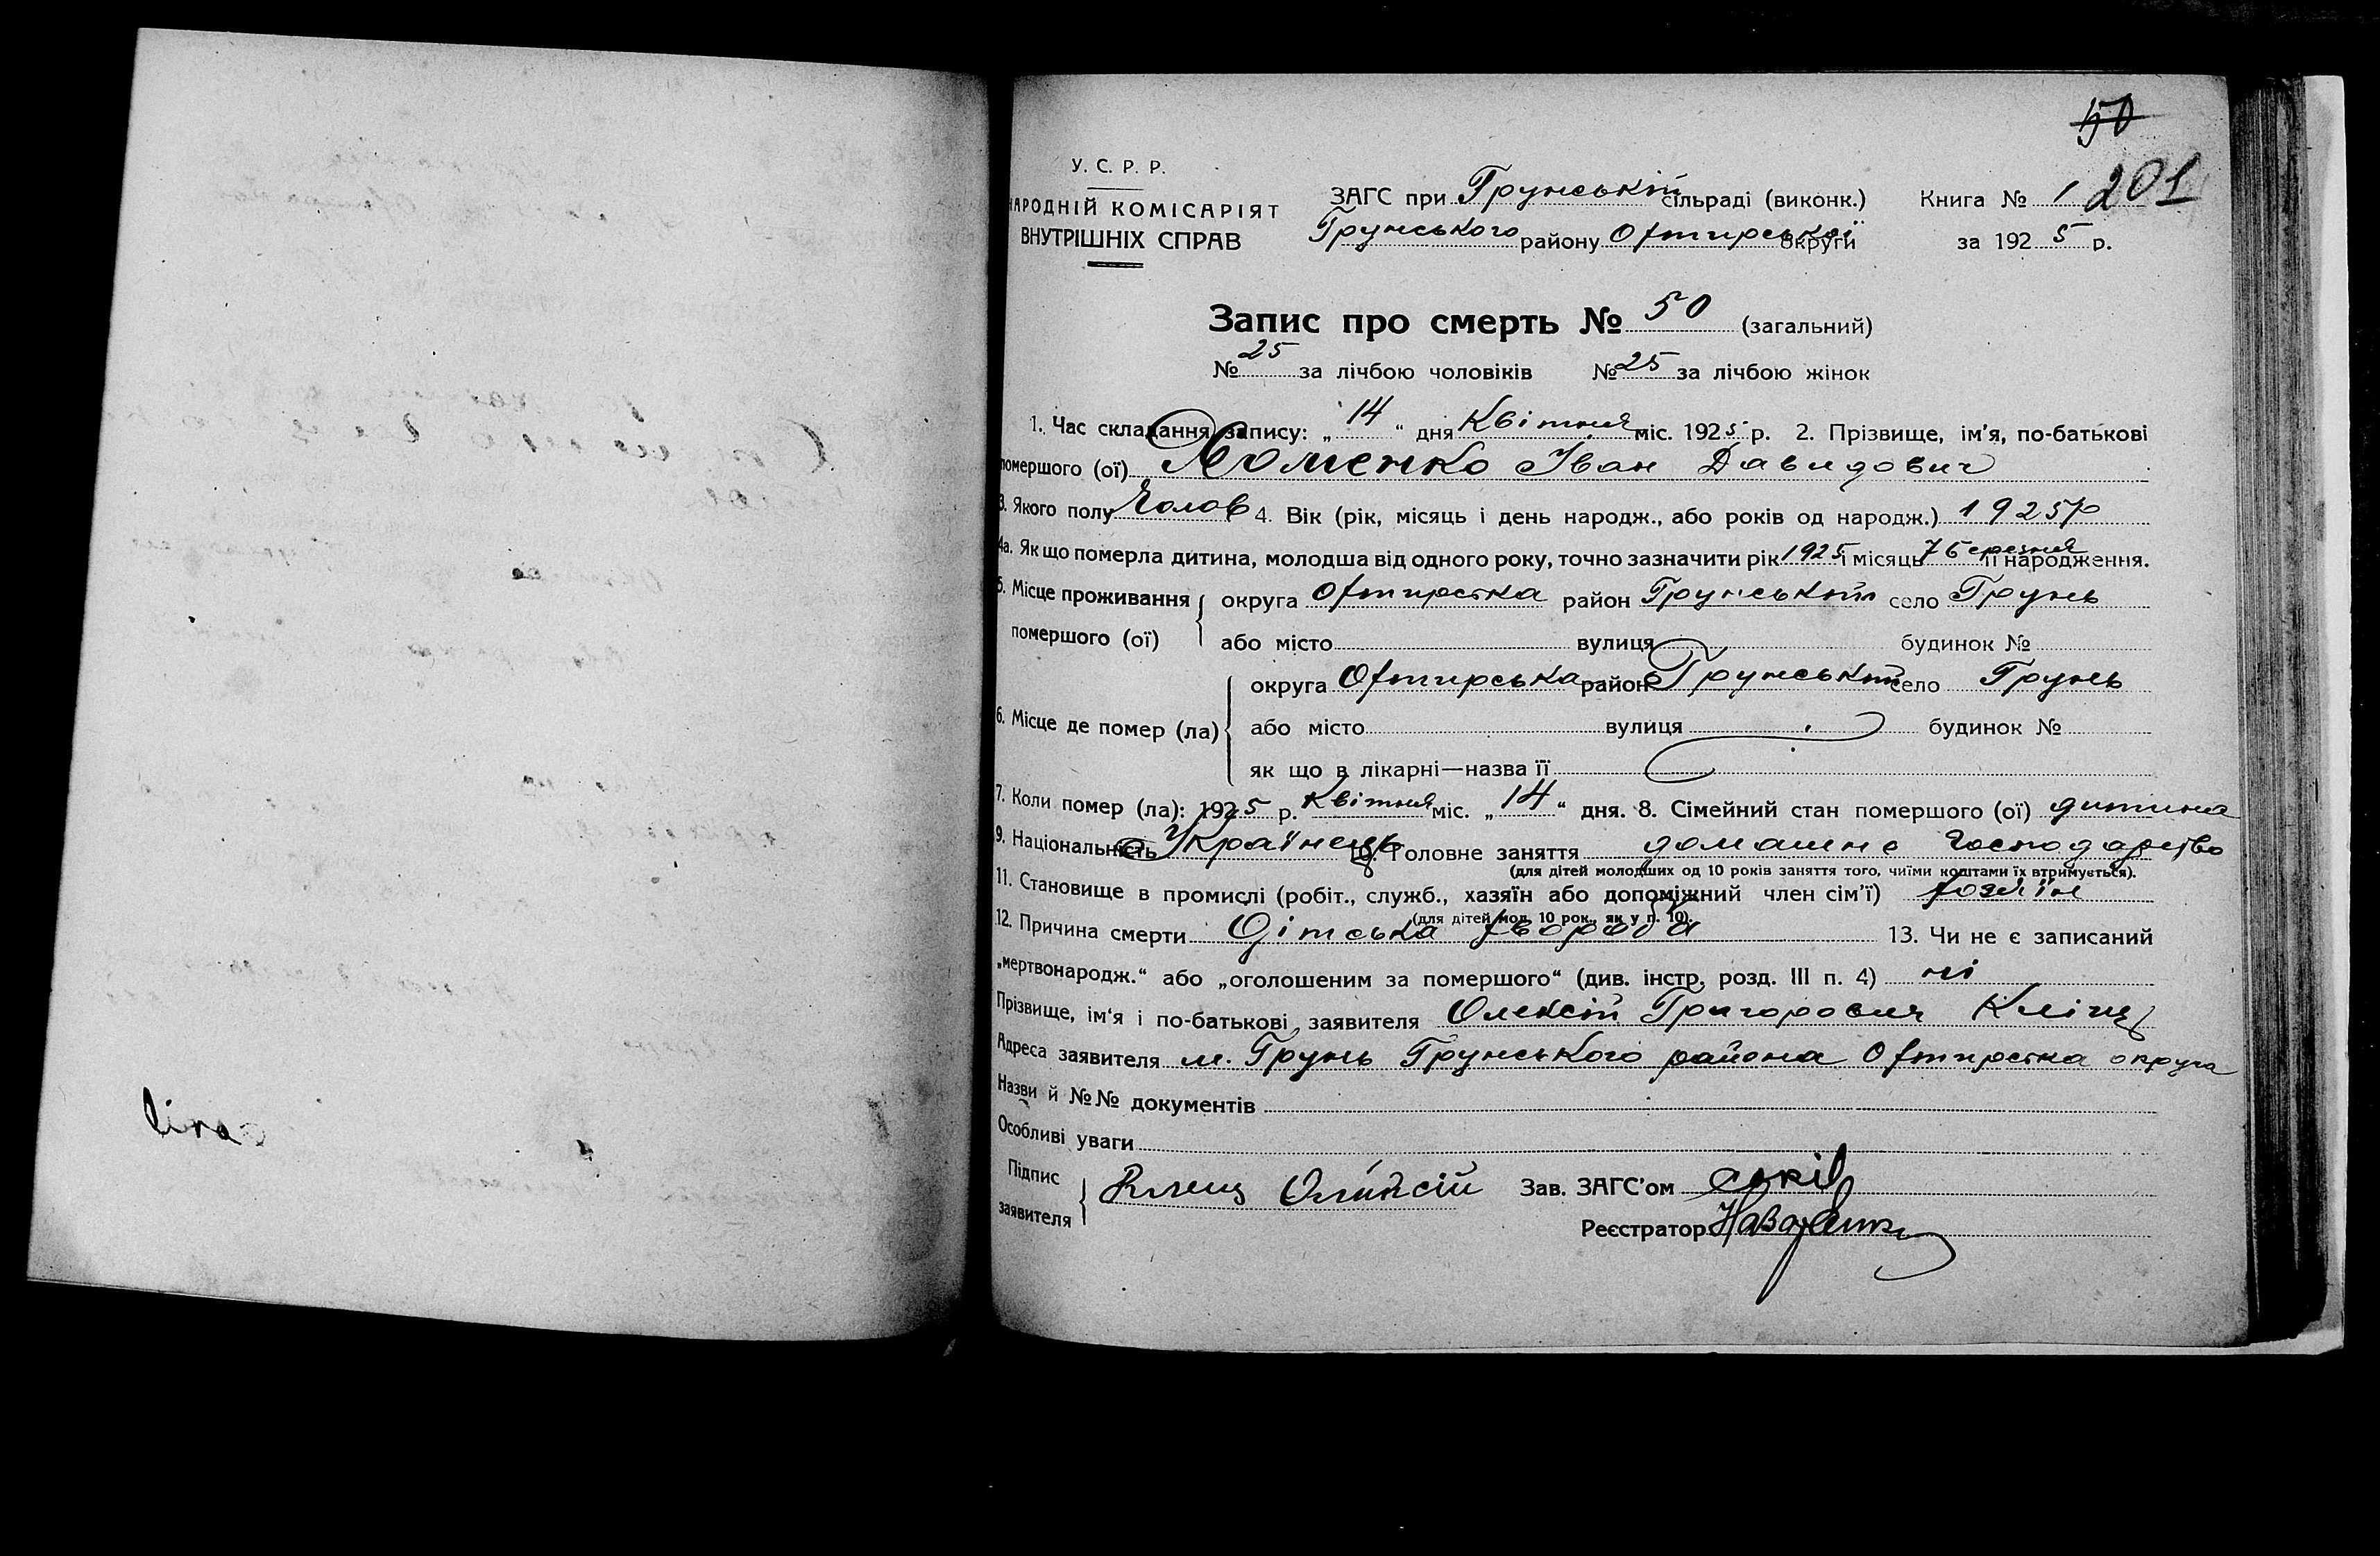 50
У. С. Р. Р.
НАРОДНІЙ КОМІСАРІЯТ
ВНУТРІШНІХ СПРАВ
ЗАГС при Грунській сільраді (виконк.)
Грунського району Охтирської округи
Книга № 1 201
за 1925 р.
Запис про смерть № 50 (загальний)
№ 25 за лічбою чоловіків № 25 за лічбою жінок
1. Час складання запису: „14“ дня Квітня міс. 1925 р. 2. Прізвище, ім’я, по-батькові
помершого (ої) Хоменко Іван Давидович
3. Якого полу Чолов 4. Вік (рік, місяць і день народж., або років од народж.) 1925р
4а. Як що померла дитина, молодша від одного року, точно зазначити рік 1925 і місяць 7 березня її народження.
5. Місце проживання помершого (ої) округа Охтирська район Грунський село Грунь
або місто вулиця будинок №
6. Місце де помер (ла) округа Охтирська район Грунський село Грунь
або місто вулиця будинок №
як що в лікарні—назва її
7. Коли помер (ла): 1925 р. Квітня міс. „14“ дня. 8. Сімейний стан помершого (ої) дитина
9. Національність Українець 10. Головне заняття домашнє господарство
(для дітей молодших од 10 років заняття того, чиїми коштами їх втримується).
11. Становище в промислі (робіт., служб., хазяїн або допоміжний член сім’ї) хозяїн
(для дітей мол. 10 рок., як у п. 10).
12. Причина смерти Дітська хвороба 13. Чи не є записаний
„мертвонародж.“ або „оголошеним за помершого“ (див. інстр. розд. III п. 4) ні
Прізвище, ім‘я і по-батькові заявителя Олексій Григорович Кліщ
Адреса заявителя м. Грунь Грунського района Охтирська округа
Назви й №№ документів
Особливі уваги
Підпис заявителя Клещ Олексій Зав. ЗАГС’ом
Реєстратор